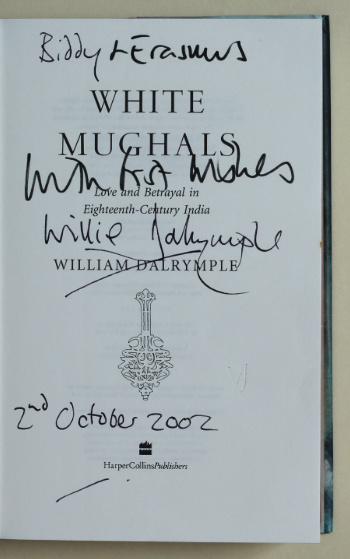 Biddy + Erasmus
WHITE
MUGHALS
With best wishes
Love and Betrayal in
Eighteenth-Century India
Willie Dalrymple
WILLIAM DALRYMPLE
2nd October 2002
HarperCollinsPublishers